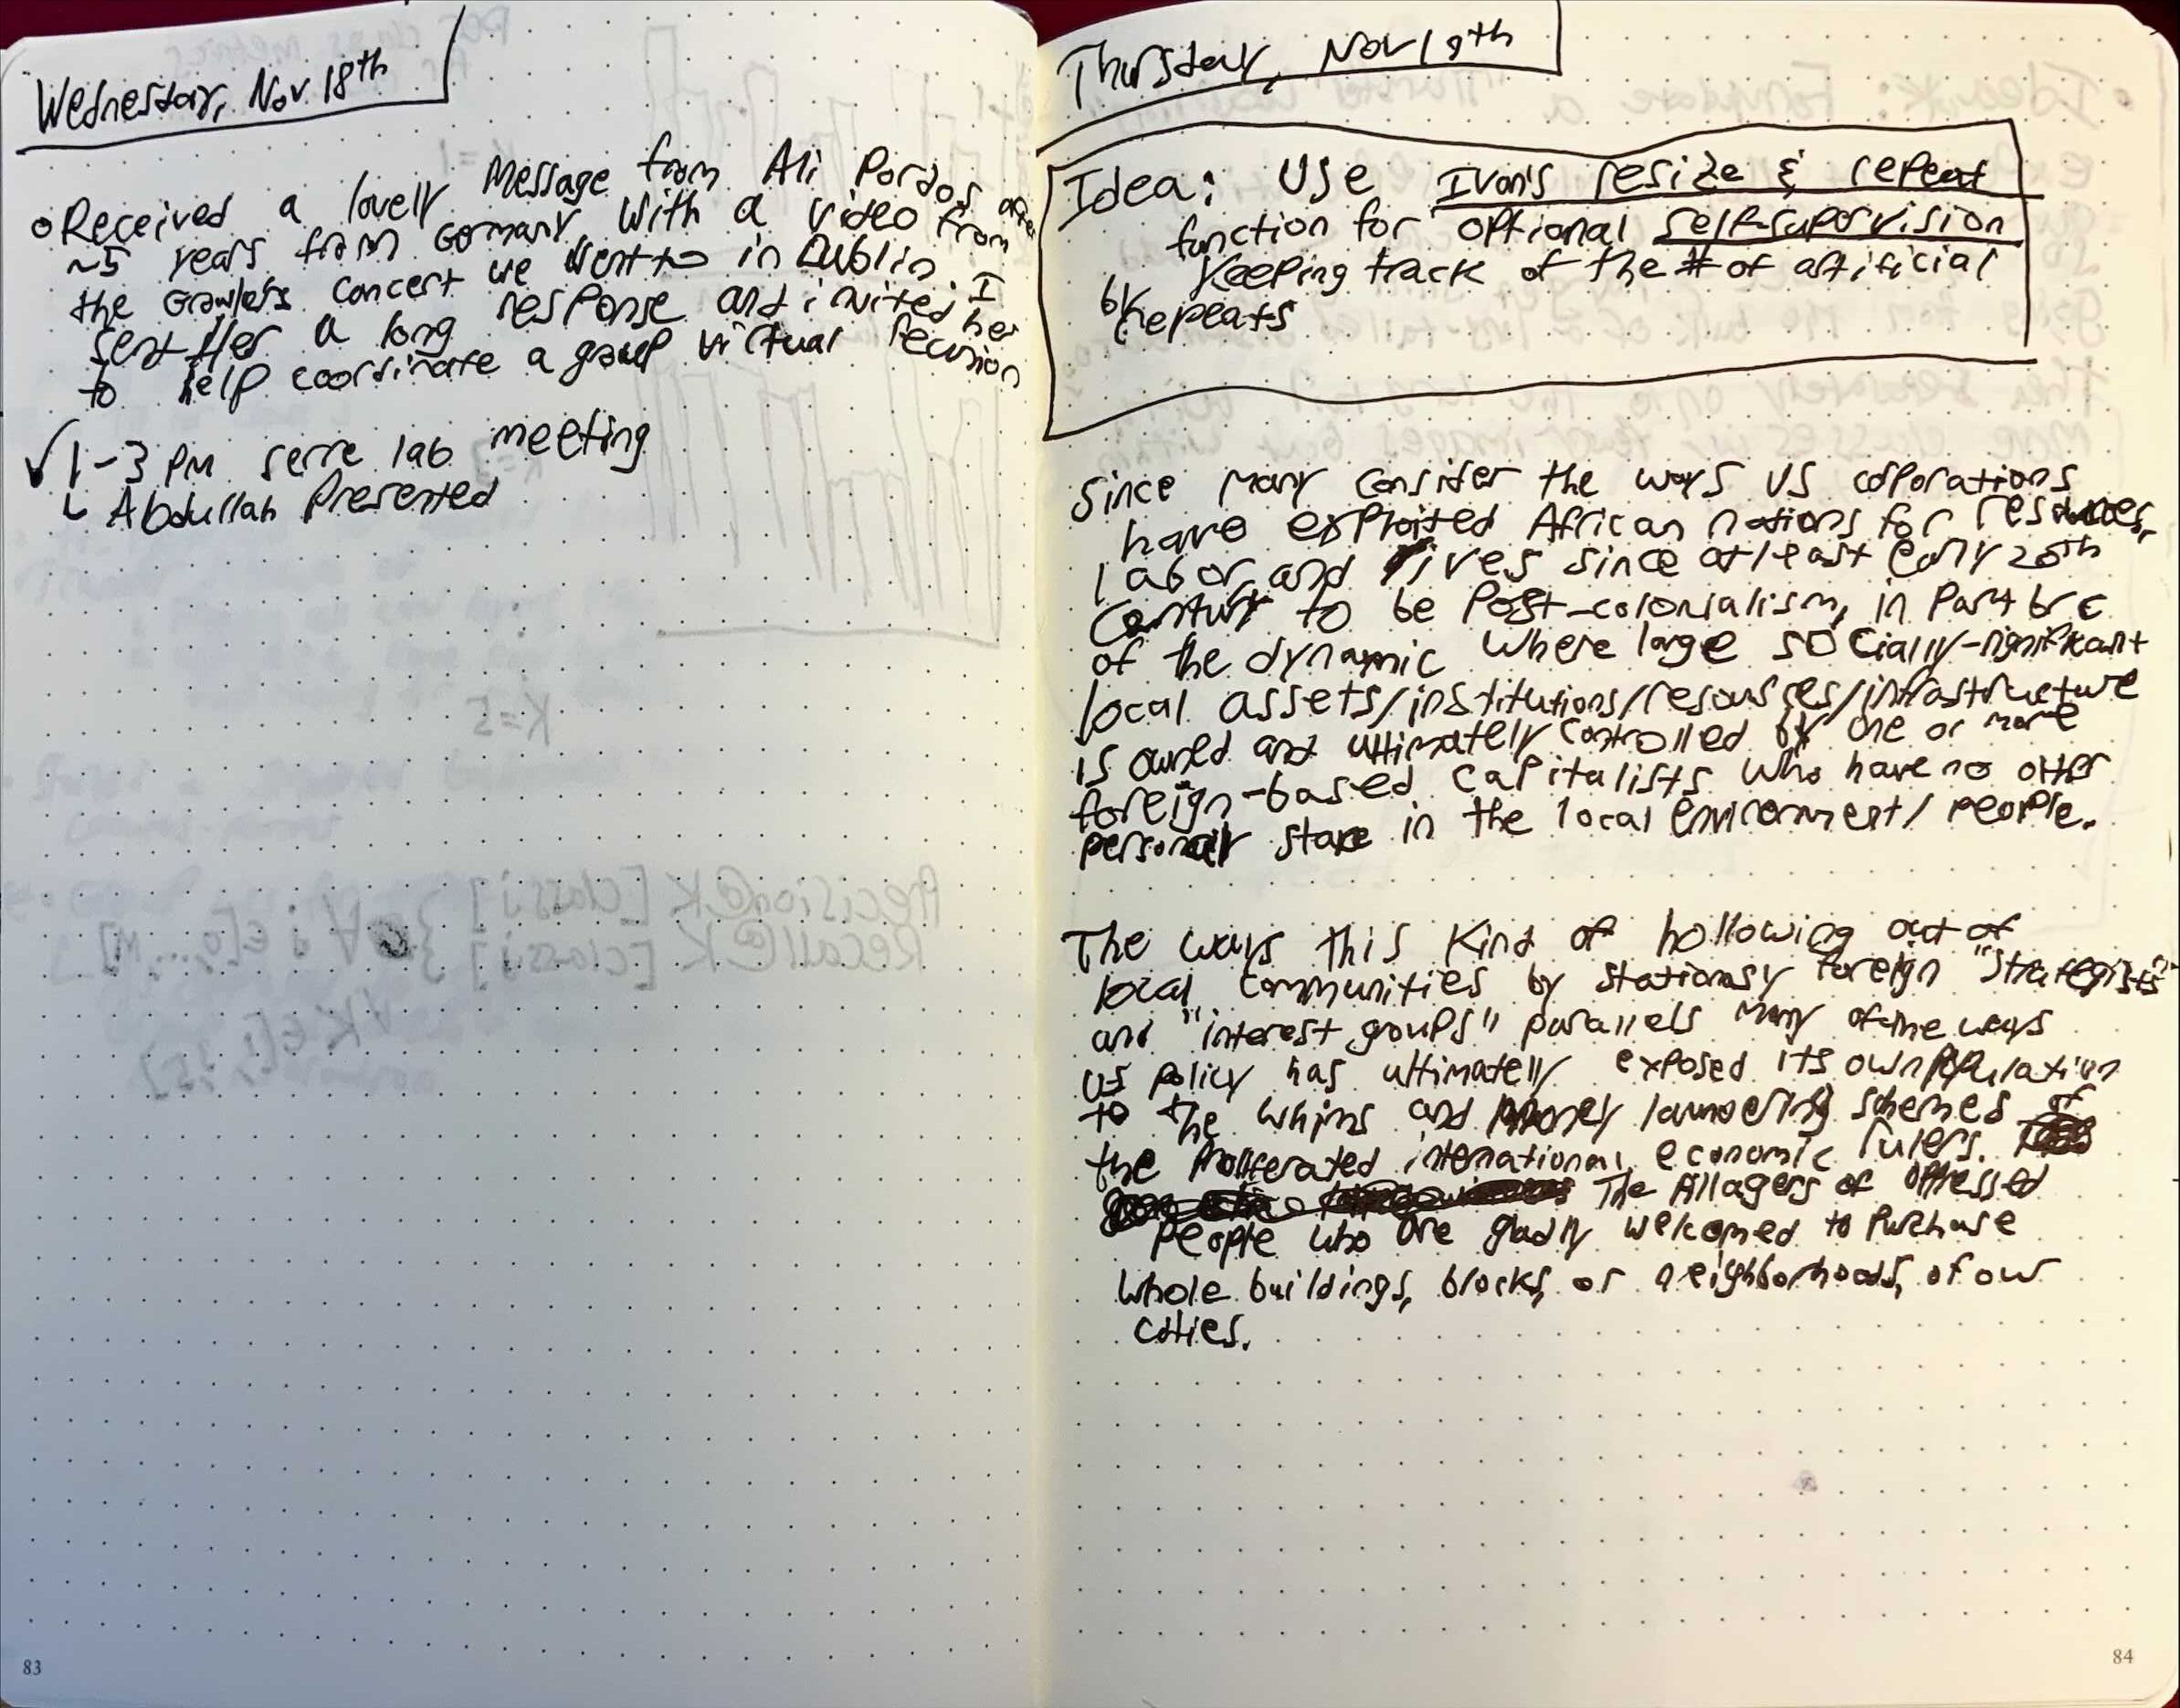 Wednesday, Nov 18th
Received a lovely message from Ali Pordos after
~5 years from Germany, with a video from
the Crawlers concert we went to in Dublin. I
sent Her a long response and invited her
to help coordinate a group virtual reunion
√ 1-3 PM serre lab meeting
↳ Abdullah Presented
83
Thursday, Nov 19th
Idea: Use Ivan's resize & repeat
function for optional self-supervision
by keeping track of the # of artificial
repeats
Since many consider the ways US corporations
have exploited African nations for resources,
labor, and lives since at least early 20th
Century to be Post-colonialism, in Part b/c
of the dynamic where large socially-significant
local assets/institutions/resources/infrastructure
is owned and ultimately controlled by one or more
foreign-based capitalists who have no other
personal stake in the local environment/people.
The ways this kind of hollowing out of
local communities by stationary foreign "strategists"
and "interest groups" parallels many of the ways
US policy has ultimately exposed its own population
to the whims and money laundering schemes of
the proliferated international economic rulers.
The Pillagers of oppressed
People who are gladly welcomed to Purchase
whole buildings, blocks, or neighborhoods, of our
cities.
84